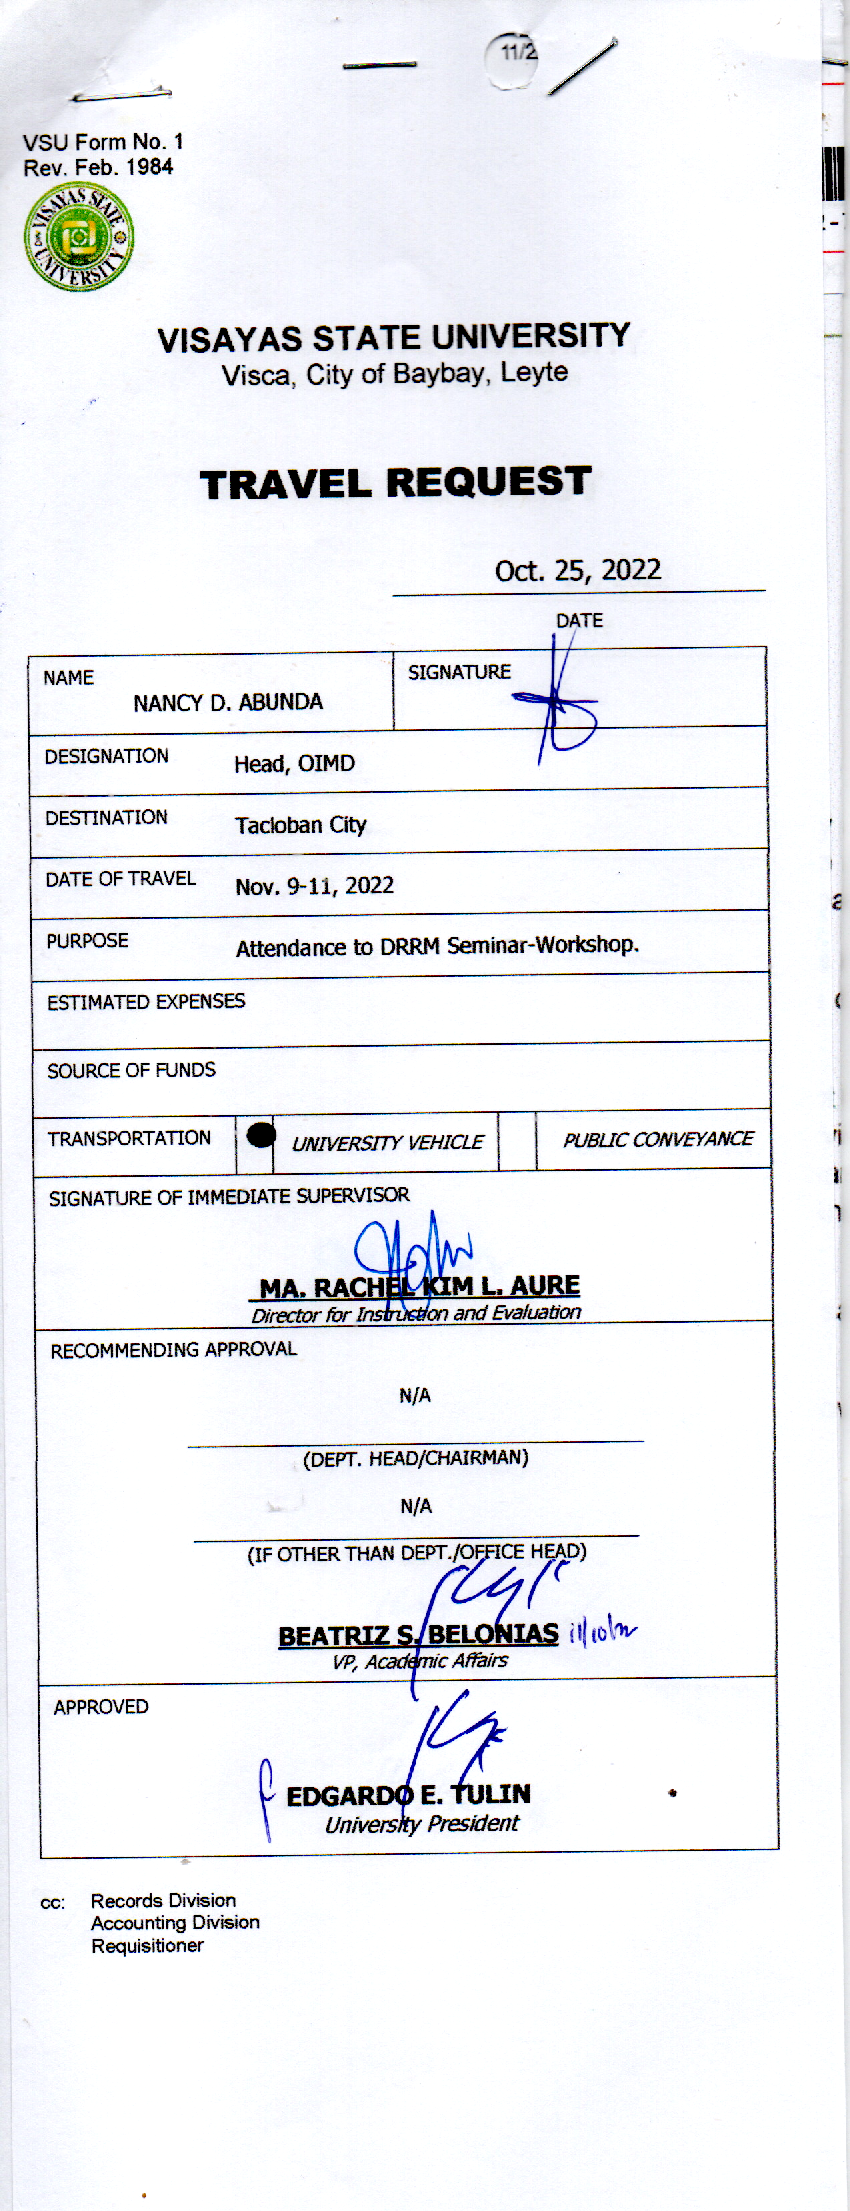 11/2
VSU Form No. 1
Rev. Feb. 1984
VISAYAS STATE UNIVERSITY
VISAYAS STATE UNIVERSITY
Visca, City of Baybay, Leyte
TRAVEL REQUEST
Oct. 25, 2022
DATE
NAME
NANCY D. ABUNDA
SIGNATURE
DESIGNATION Head, OIMD
DESTINATION Tacloban City
DATE OF TRAVEL Nov. 9-11, 2022
PURPOSE Attendance to DRRM Seminar-Workshop.
ESTIMATED EXPENSES
SOURCE OF FUNDS
TRANSPORTATION UNIVERSITY VEHICLE PUBLIC CONVEYANCE
SIGNATURE OF IMMEDIATE SUPERVISOR
MA. RACHEL KIM L. AURE
Director for Instruction and Evaluation
RECOMMENDING APPROVAL
N/A
(DEPT. HEAD/CHAIRMAN)
N/A
(IF OTHER THAN DEPT./OFFICE HEAD)
BEATRIZ S. BELONIAS 11/10/22
VP, Academic Affairs
APPROVED
EDGARDO E. TULIN
University President
cc: Records Division
Accounting Division
Requisitioner